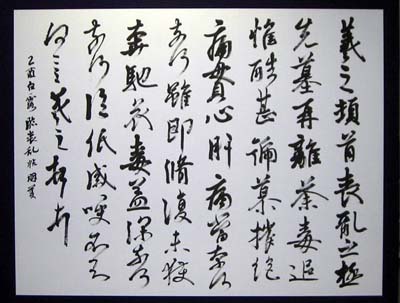 羲之頓首喪亂之極
先墓再離荼毒追
惟酷甚號慕摧絕
痛貫心肝痛當奈何
奈何雖即脩復未獲
奔馳哀毒益深奈何
奈何臨紙感哽不知
何言羲之頓首頓首
乙酉白露臨喪亂帖